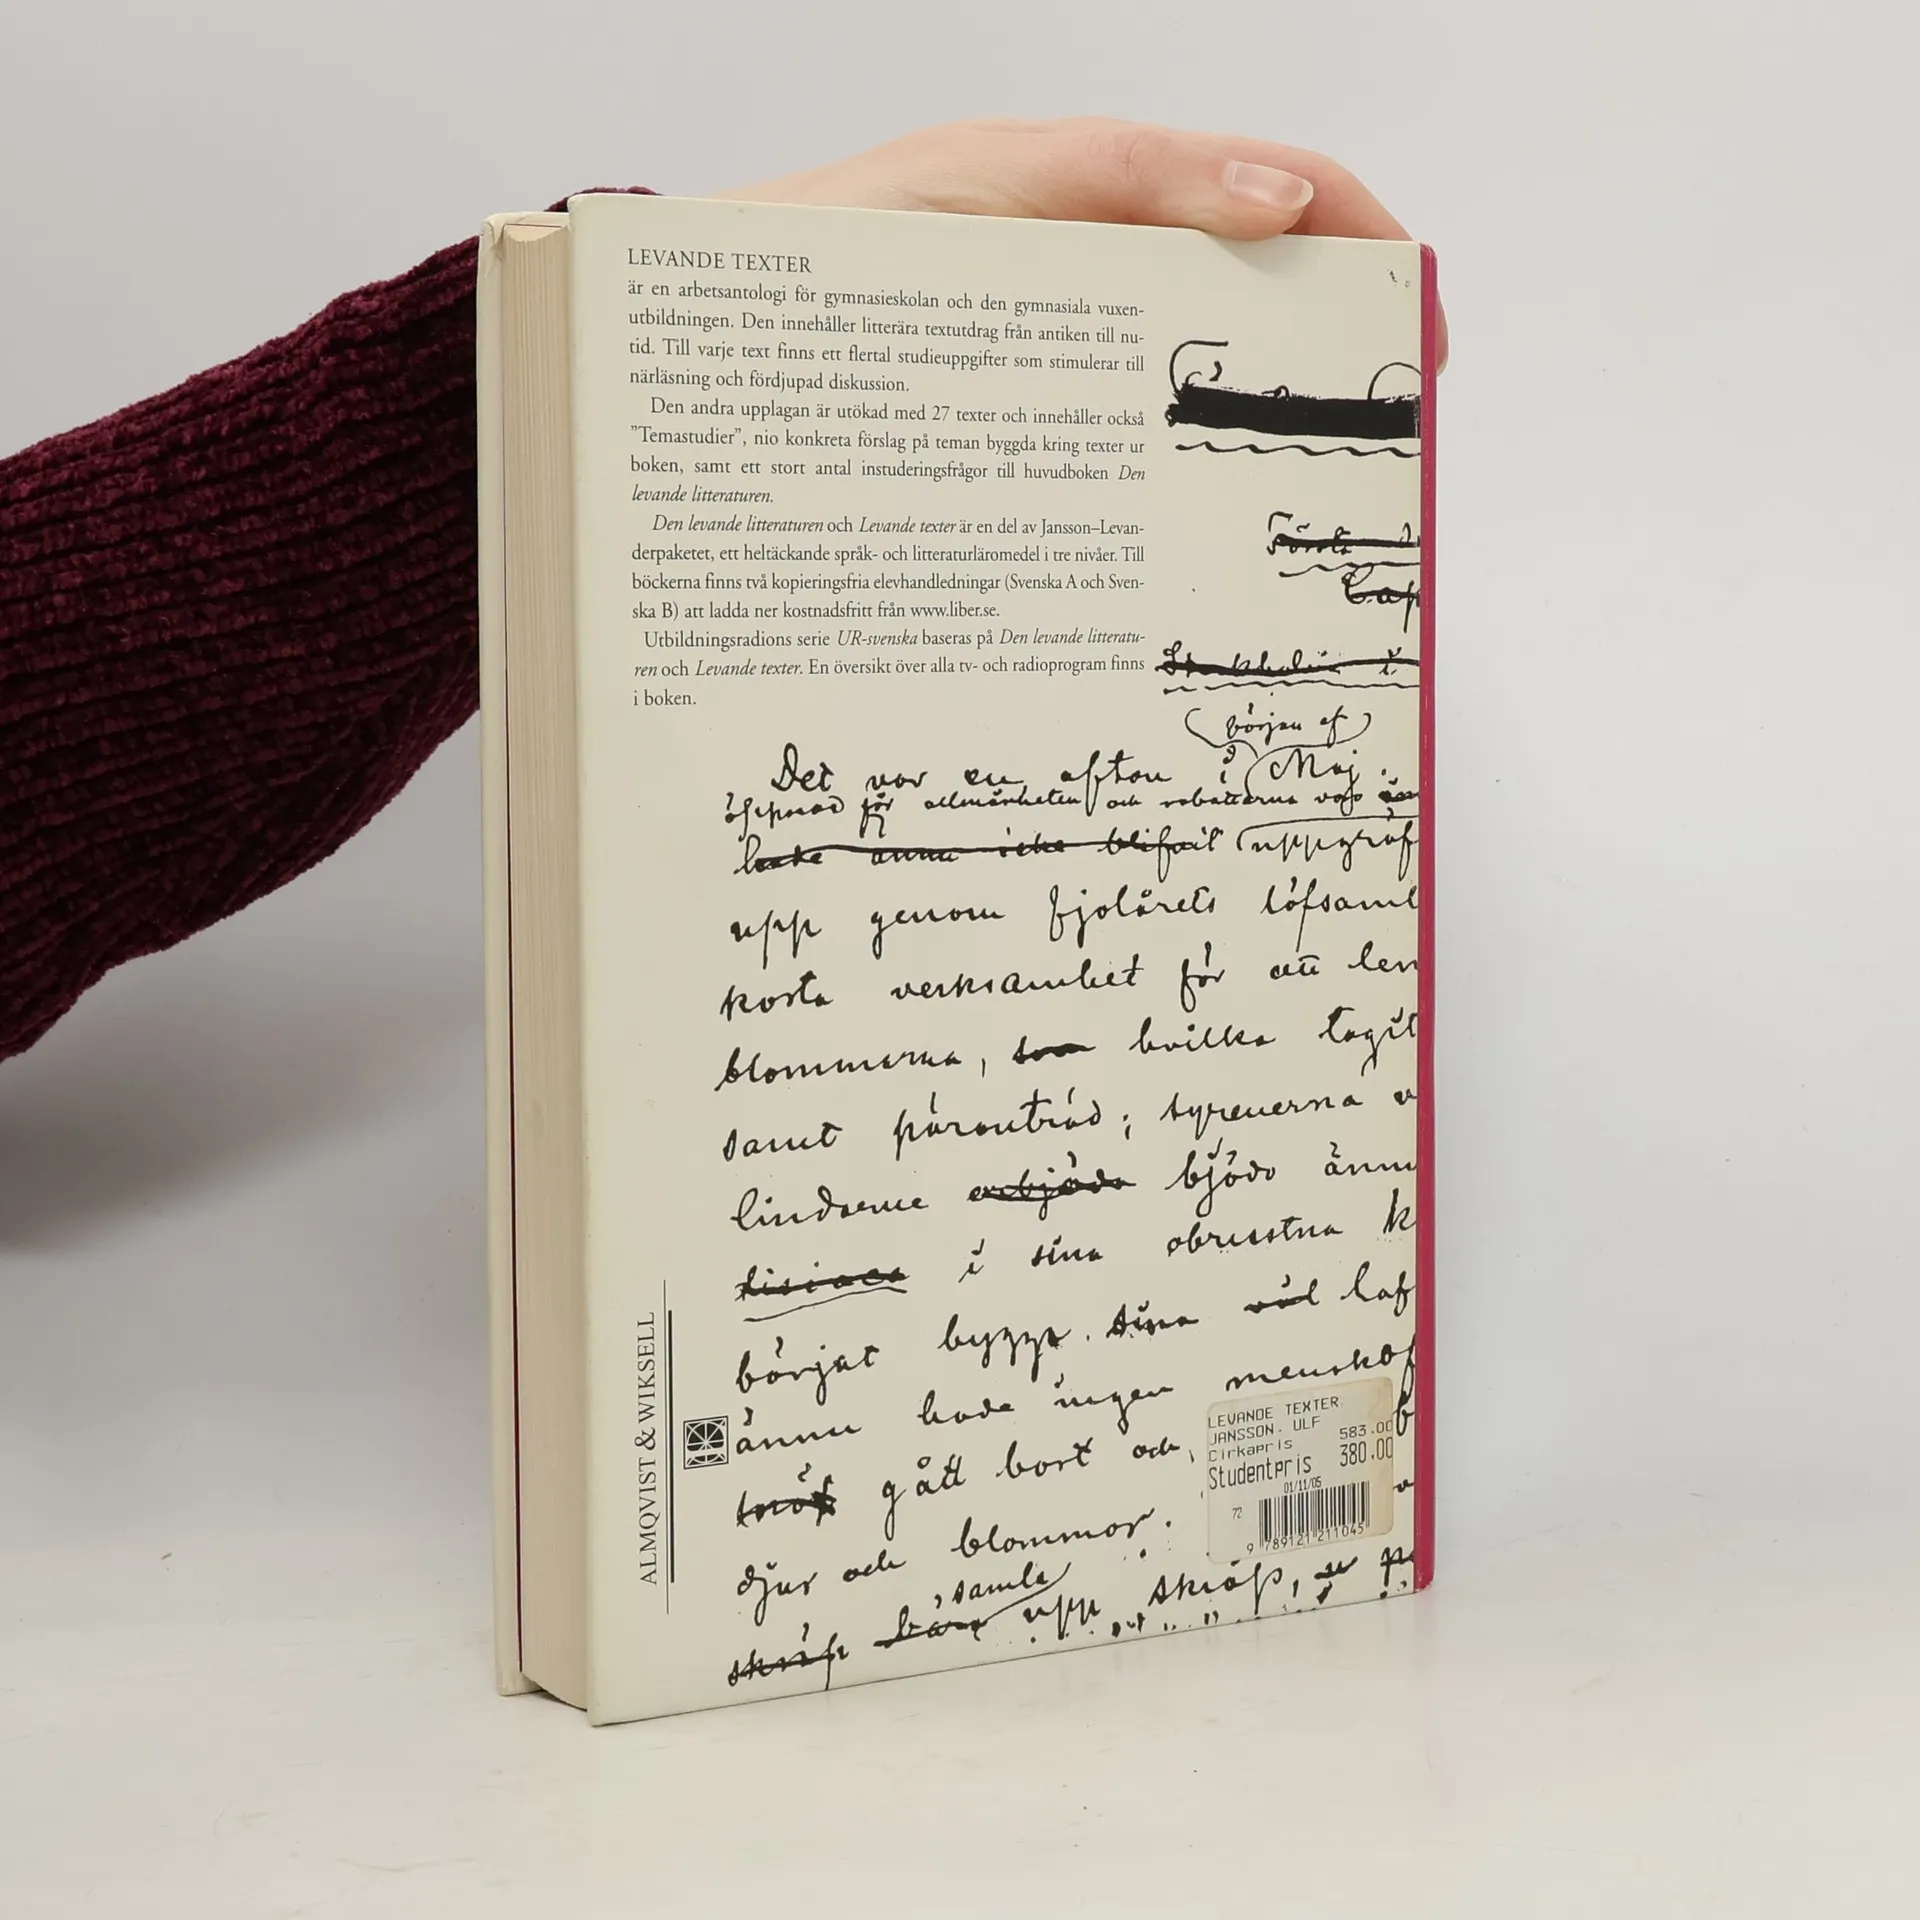 LEVANDE TEXTER
är en arbetsantologi för gymnasieskolan och den gymnasiala vuxen-
utbildningen. Den innehåller litterära textutdrag från antiken till nu-
tid. Till varje text finns ett flertal studieuppgifter som stimulerar till
närläsning och fördjupad diskussion.
Den andra upplagan är utökad med 27 texter och innehåller också
”Temastudier”, nio konkreta förslag på teman byggda kring texter ur
boken, samt ett stort antal instuderingsfrågor till huvudboken Den
levande litteraturen.
Den levande litteraturen och Levande texter är en del av Jansson–Levan-
derpaketet, ett heltäckande språk- och litteraturläromedel i tre nivåer. Till
böckerna finns två kopieringsfria elevhandledningar (Svenska A och Sven-
ska B) att ladda ner kostnadsfritt från www.liber.se.
Utbildningsradions serie UR-svenska baseras på Den levande litteratu-
ren och Levande texter. En översikt över alla tv- och radioprogram finns
i boken.
början af
Det var en afton i Maj.
öppnad för allmänheten och rabatterna voro
hade ännu icke blifvit uppgräf
upp genom fjolårets löfsaml
korta verksamhet för att lem
blommorna, som hvilka tagit
samt päronträd; syrenerna
linderne erbjödo bjödo ännu
i sina obrustna k
börjat bygga sina
ännu hade ingen menskof
gått bort och
djur och blommor.
samla
skräp bära upp skräp,
ALMQVIST & WIKSELL
LEVANDE TEXTER
JANSSON. ULF
Cirkapris 583.00
Studentpris 380.00
01/11/05
72
9 789121 211045